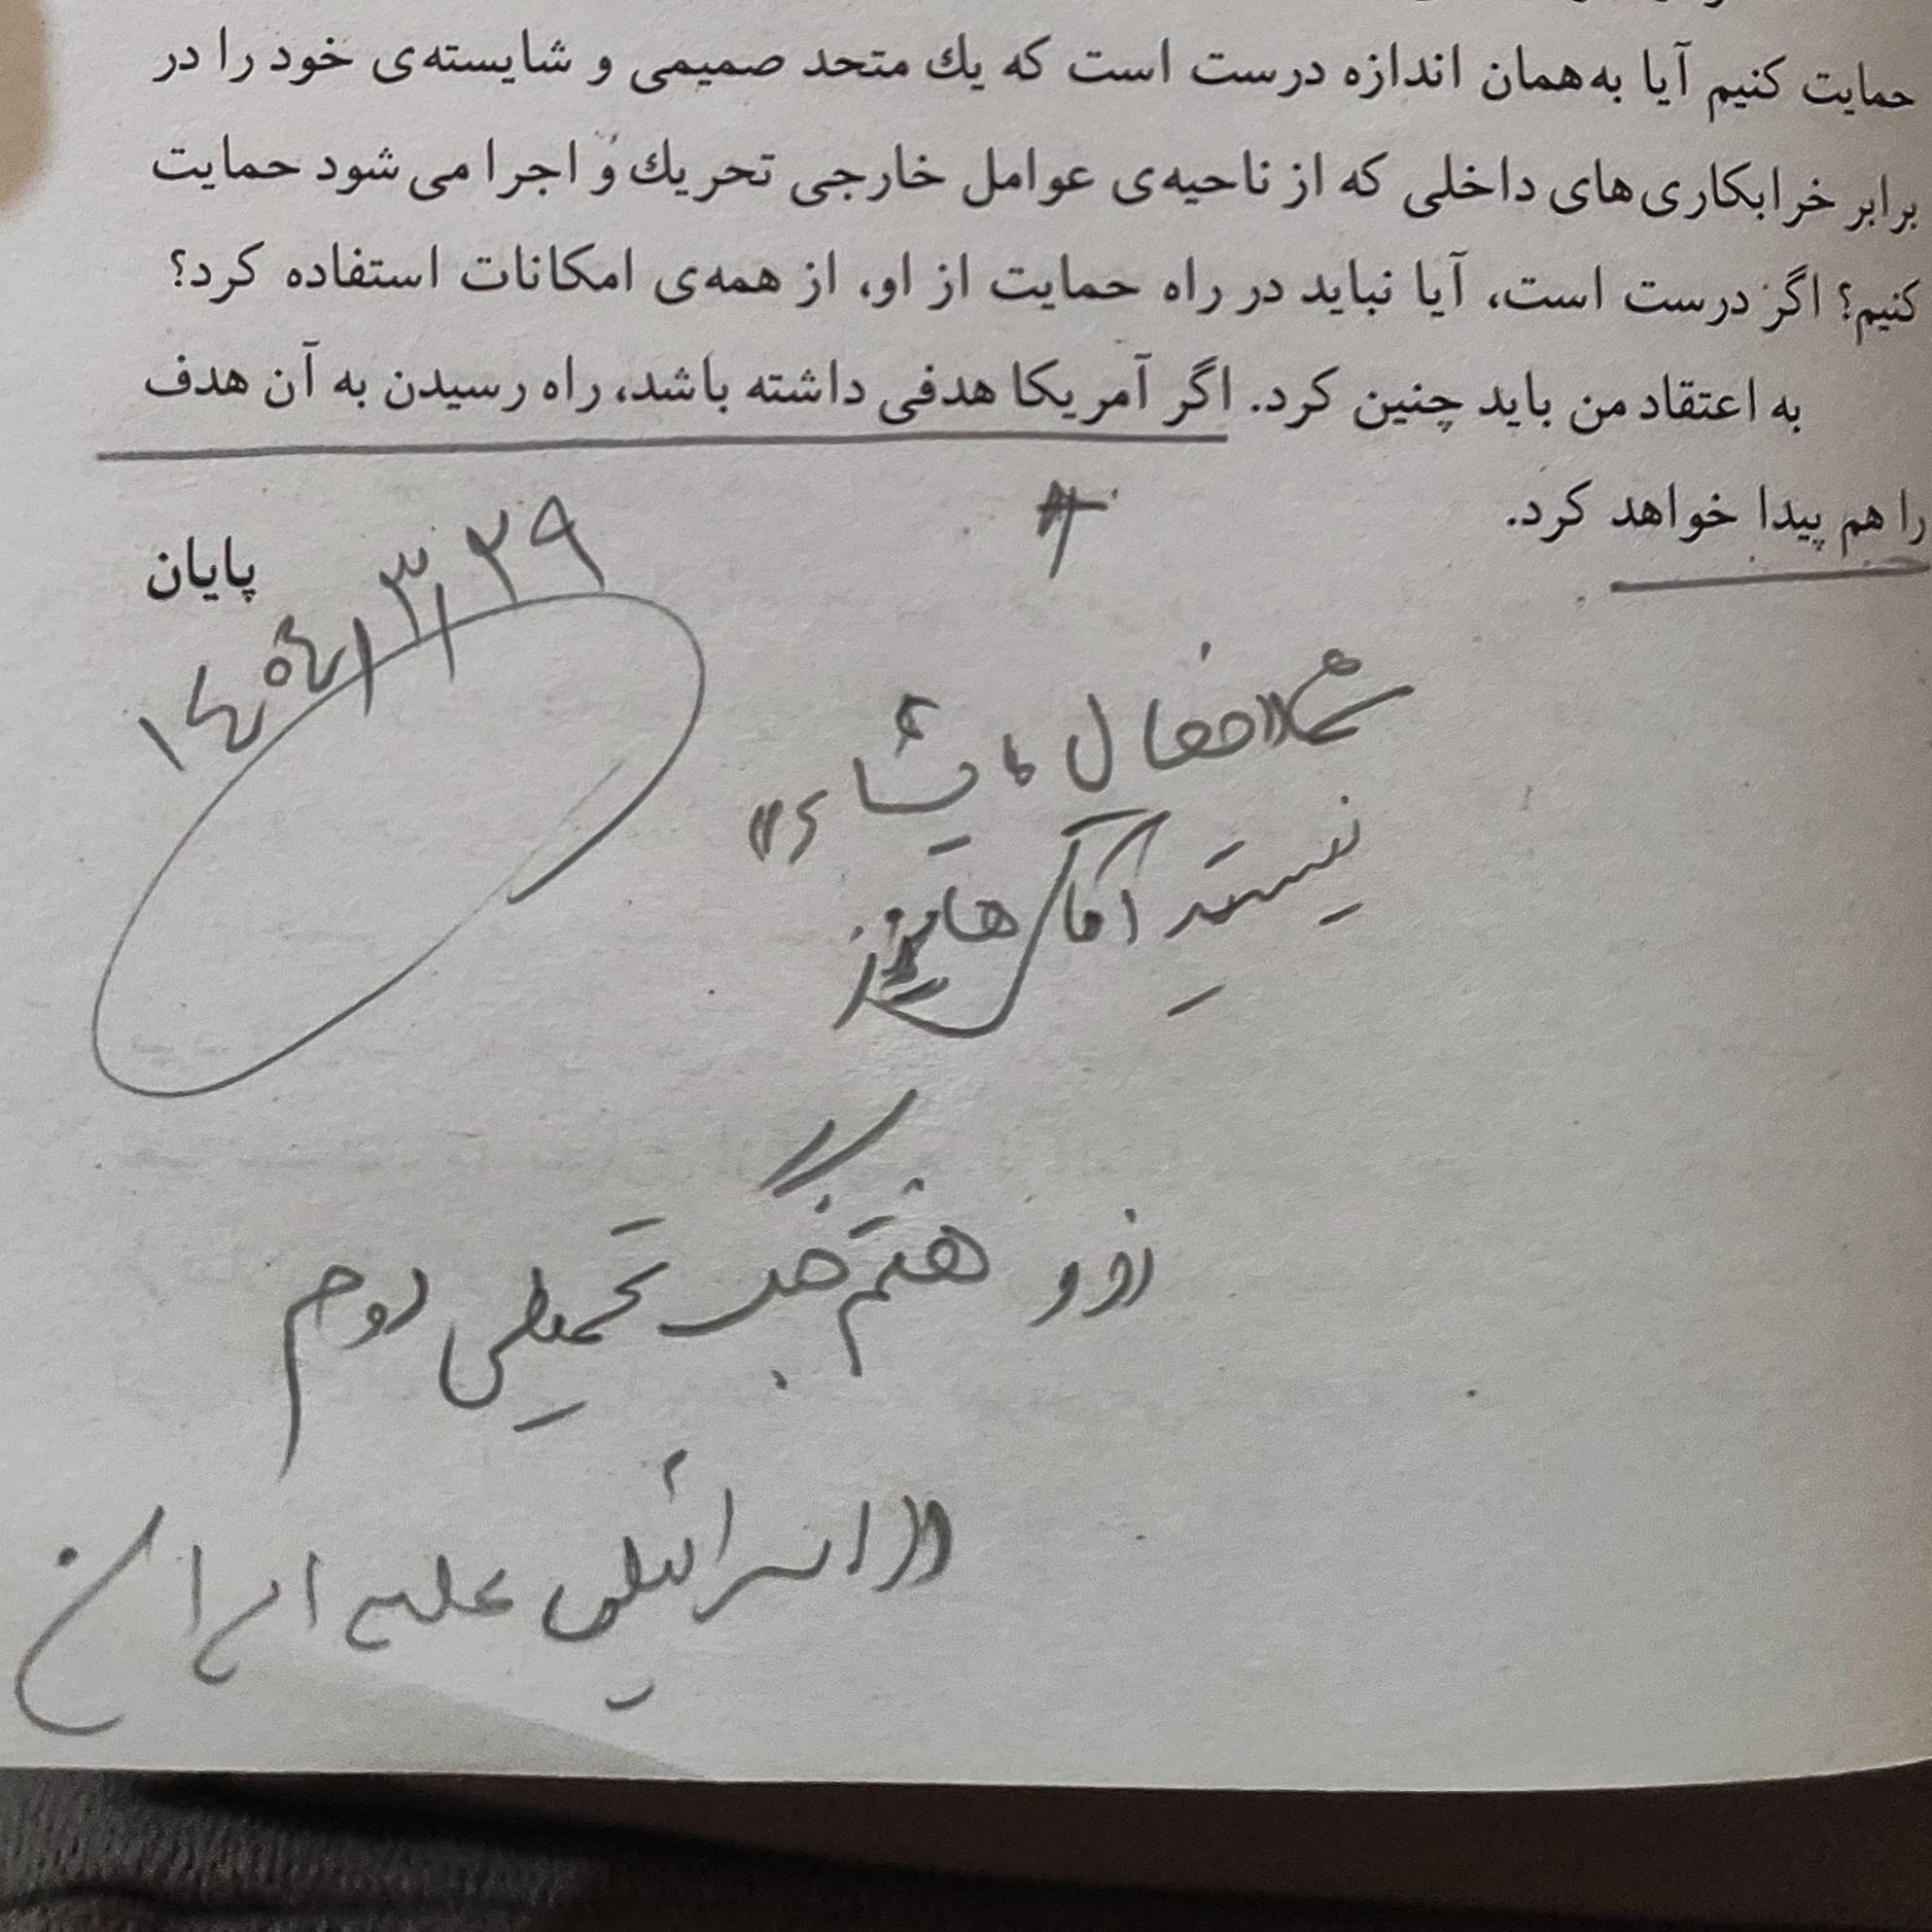 حمایت کنیم آیا به‌همان اندازه درست است که یك متحد صمیمی و شایسته‌ی خود را در
برابر خرابکاری‌های داخلی که از ناحیه‌ی عوامل خارجی تحریك و اجرا می‌شود حمایت
کنیم؟ اگر درست است، آیا نباید در راه حمایت از او، از همه‌ی امکانات استفاده کرد؟
به اعتقاد من باید چنین کرد. اگر آمریکا هدفی داشته باشد، راه رسیدن به آن هدف
را هم پیدا خواهد کرد.
پایان
۱۴۰۴/۳/۲۹
شما «فعال مایشاء»
نیستید آقای هایزر
روز هفتم جنگ تحمیلی دوم
«اسرائیلی علیه ایران